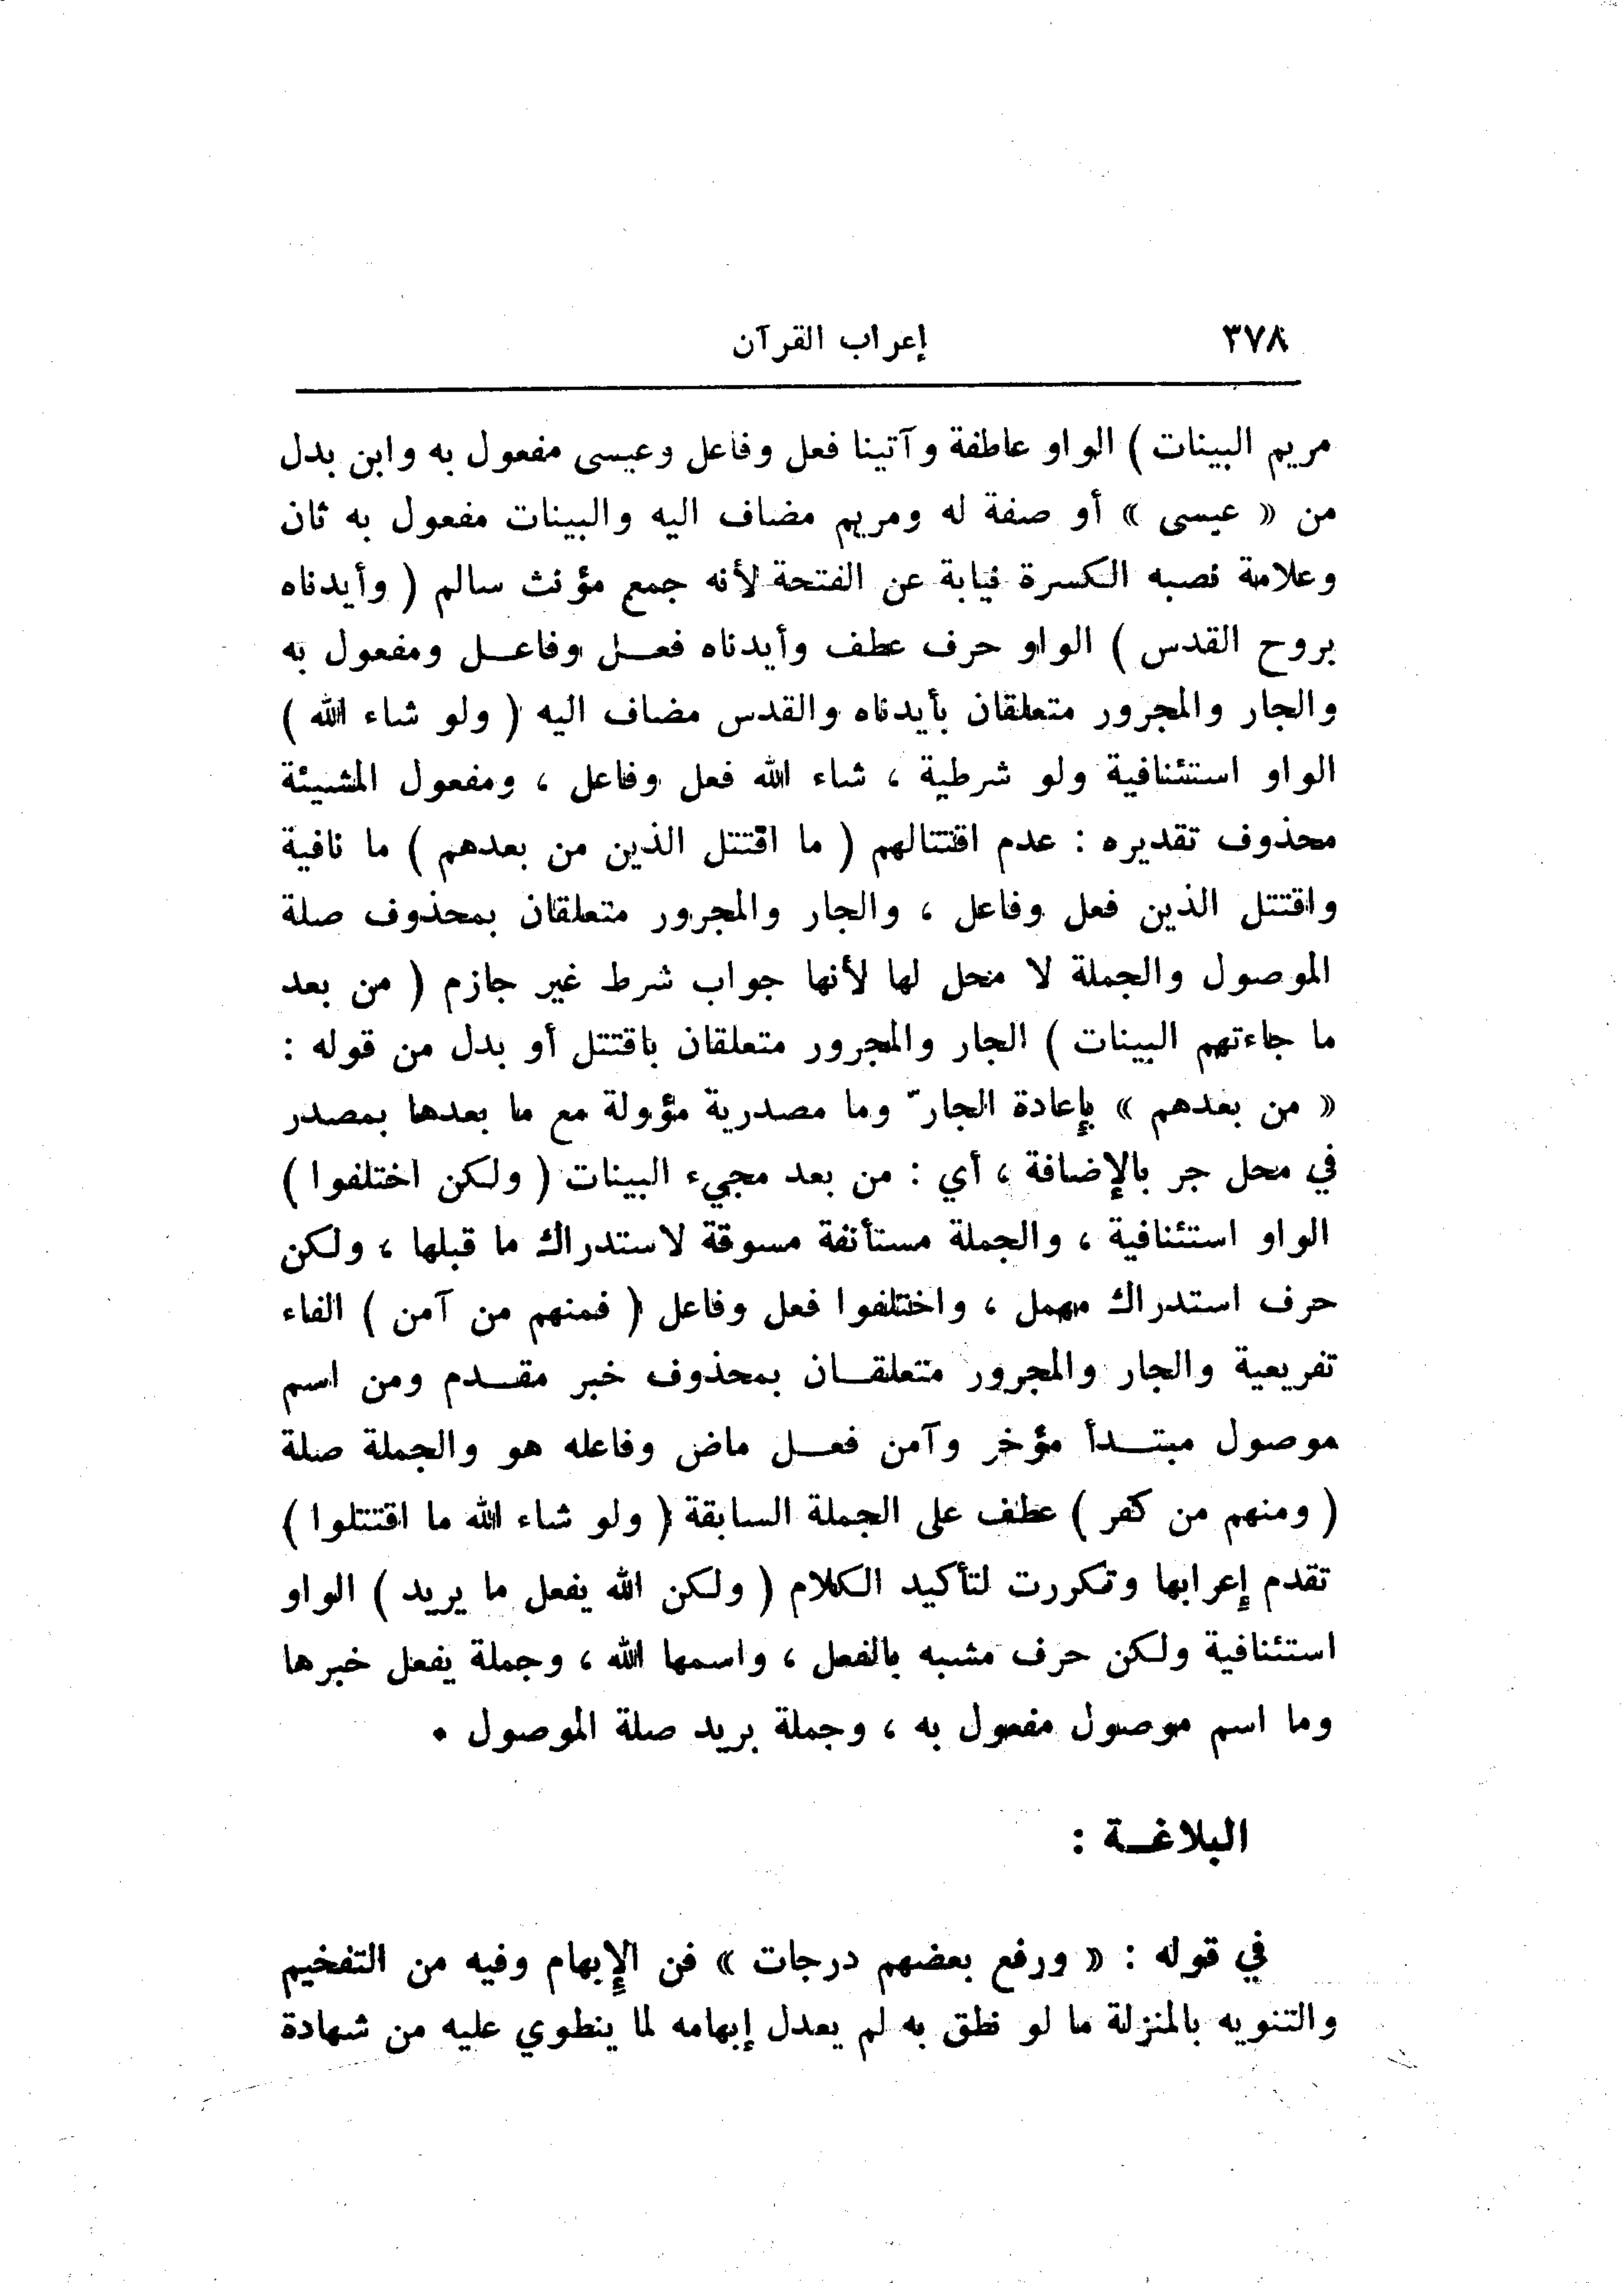 ٣٧٨ إعراب القرآن
مريم البينات ) الواو عاطفة وآتينا فعل وفاعل وعيسى مفعول به وابن بدل
من « عيسى » أو صفة له ومريم مضاف اليه والبينات مفعول به ثان
وعلامة نصبه الكسرة نيابة عن الفتحة لأنه جمع مؤنث سالم ( وأيدناه
بروح القدس ) الواو حرف عطف وأيدناه فعــل وفاعــل ومفعول به
والجار والمجرور متعلقان بأيدناه والقدس مضاف اليه ( ولو شاء الله )
الواو استئنافية ولو شرطية ، شاء الله فعل وفاعل ، ومفعول المشيئة
محذوف تقديره : عدم اقتتالهم ( ما اقتتل الذين من بعدهم ) ما نافية
واقتتل الذين فعل وفاعل ، والجار والمجرور متعلقان بمحذوف صلة
الموصول والجملة لا محل لها لأنها جواب شرط غير جازم ( من بعد
ما جاءتهم البينات ) الجار والمجرور متعلقان باقتتل أو بدل من قوله :
« من بعدهم » بإعادة الجارّ وما مصدرية مؤولة مع ما بعدها بمصدر
في محل جر بالإضافة ، أي : من بعد مجيء البينات ( ولكن اختلفوا )
الواو استئنافية ، والجملة مستأنفة مسوقة لاستدراك ما قبلها ، ولكن
حرف استدراك مهمل ، واختلفوا فعل وفاعل ( فمنهم من آمن ) الفاء
تفريعية والجار والمجرور متعلقــان بمحذوف خبر مقــدم ومن اسم
موصول مبتــدأ مؤخر وآمن فعــل ماض وفاعله هو والجملة صلة
( ومنهم من كفر ) عطف على الجملة السابقة ( ولو شاء الله ما اقتتلوا )
تقدم إعرابها وتكررت لتأكيد الكلام ( ولكن الله يفعل ما يريد ) الواو
استئنافية ولكن حرف مشبه بالفعل ، واسمها الله ، وجملة يفعل خبرها
وما اسم موصول مفعول به ، وجملة يريد صلة الموصول .
البلاغــة :
في قوله : « ورفع بعضهم درجات » فن الإبهام وفيه من التفخيم
والتنويه بالمنزلة ما لو نطق به لم يعدل إبهامه لما ينطوي عليه من شهادة